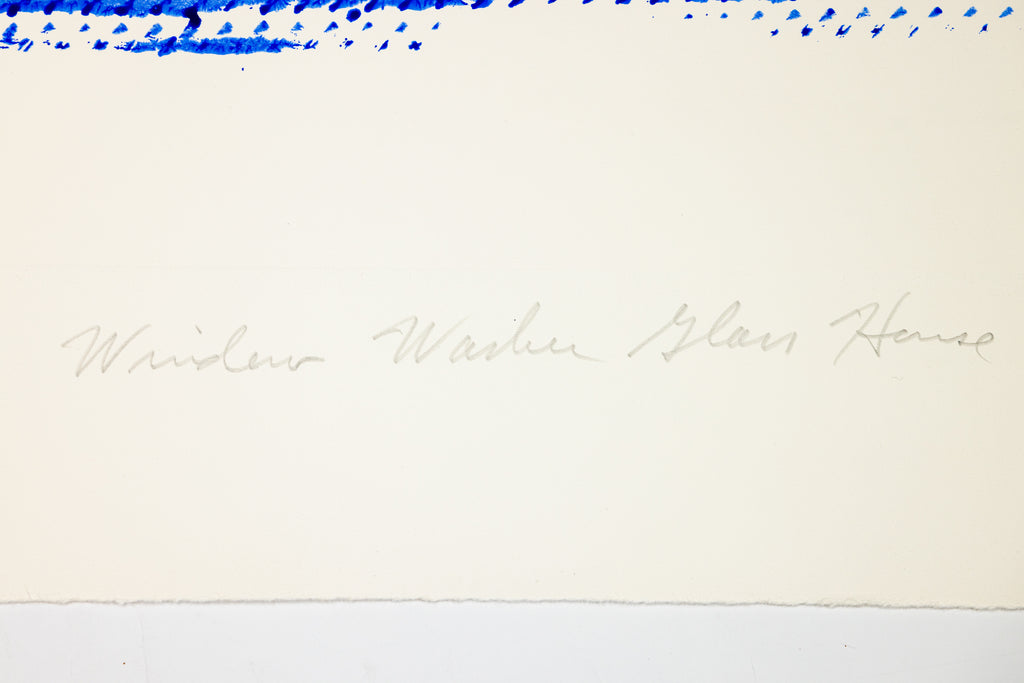 Window Washer Glass House